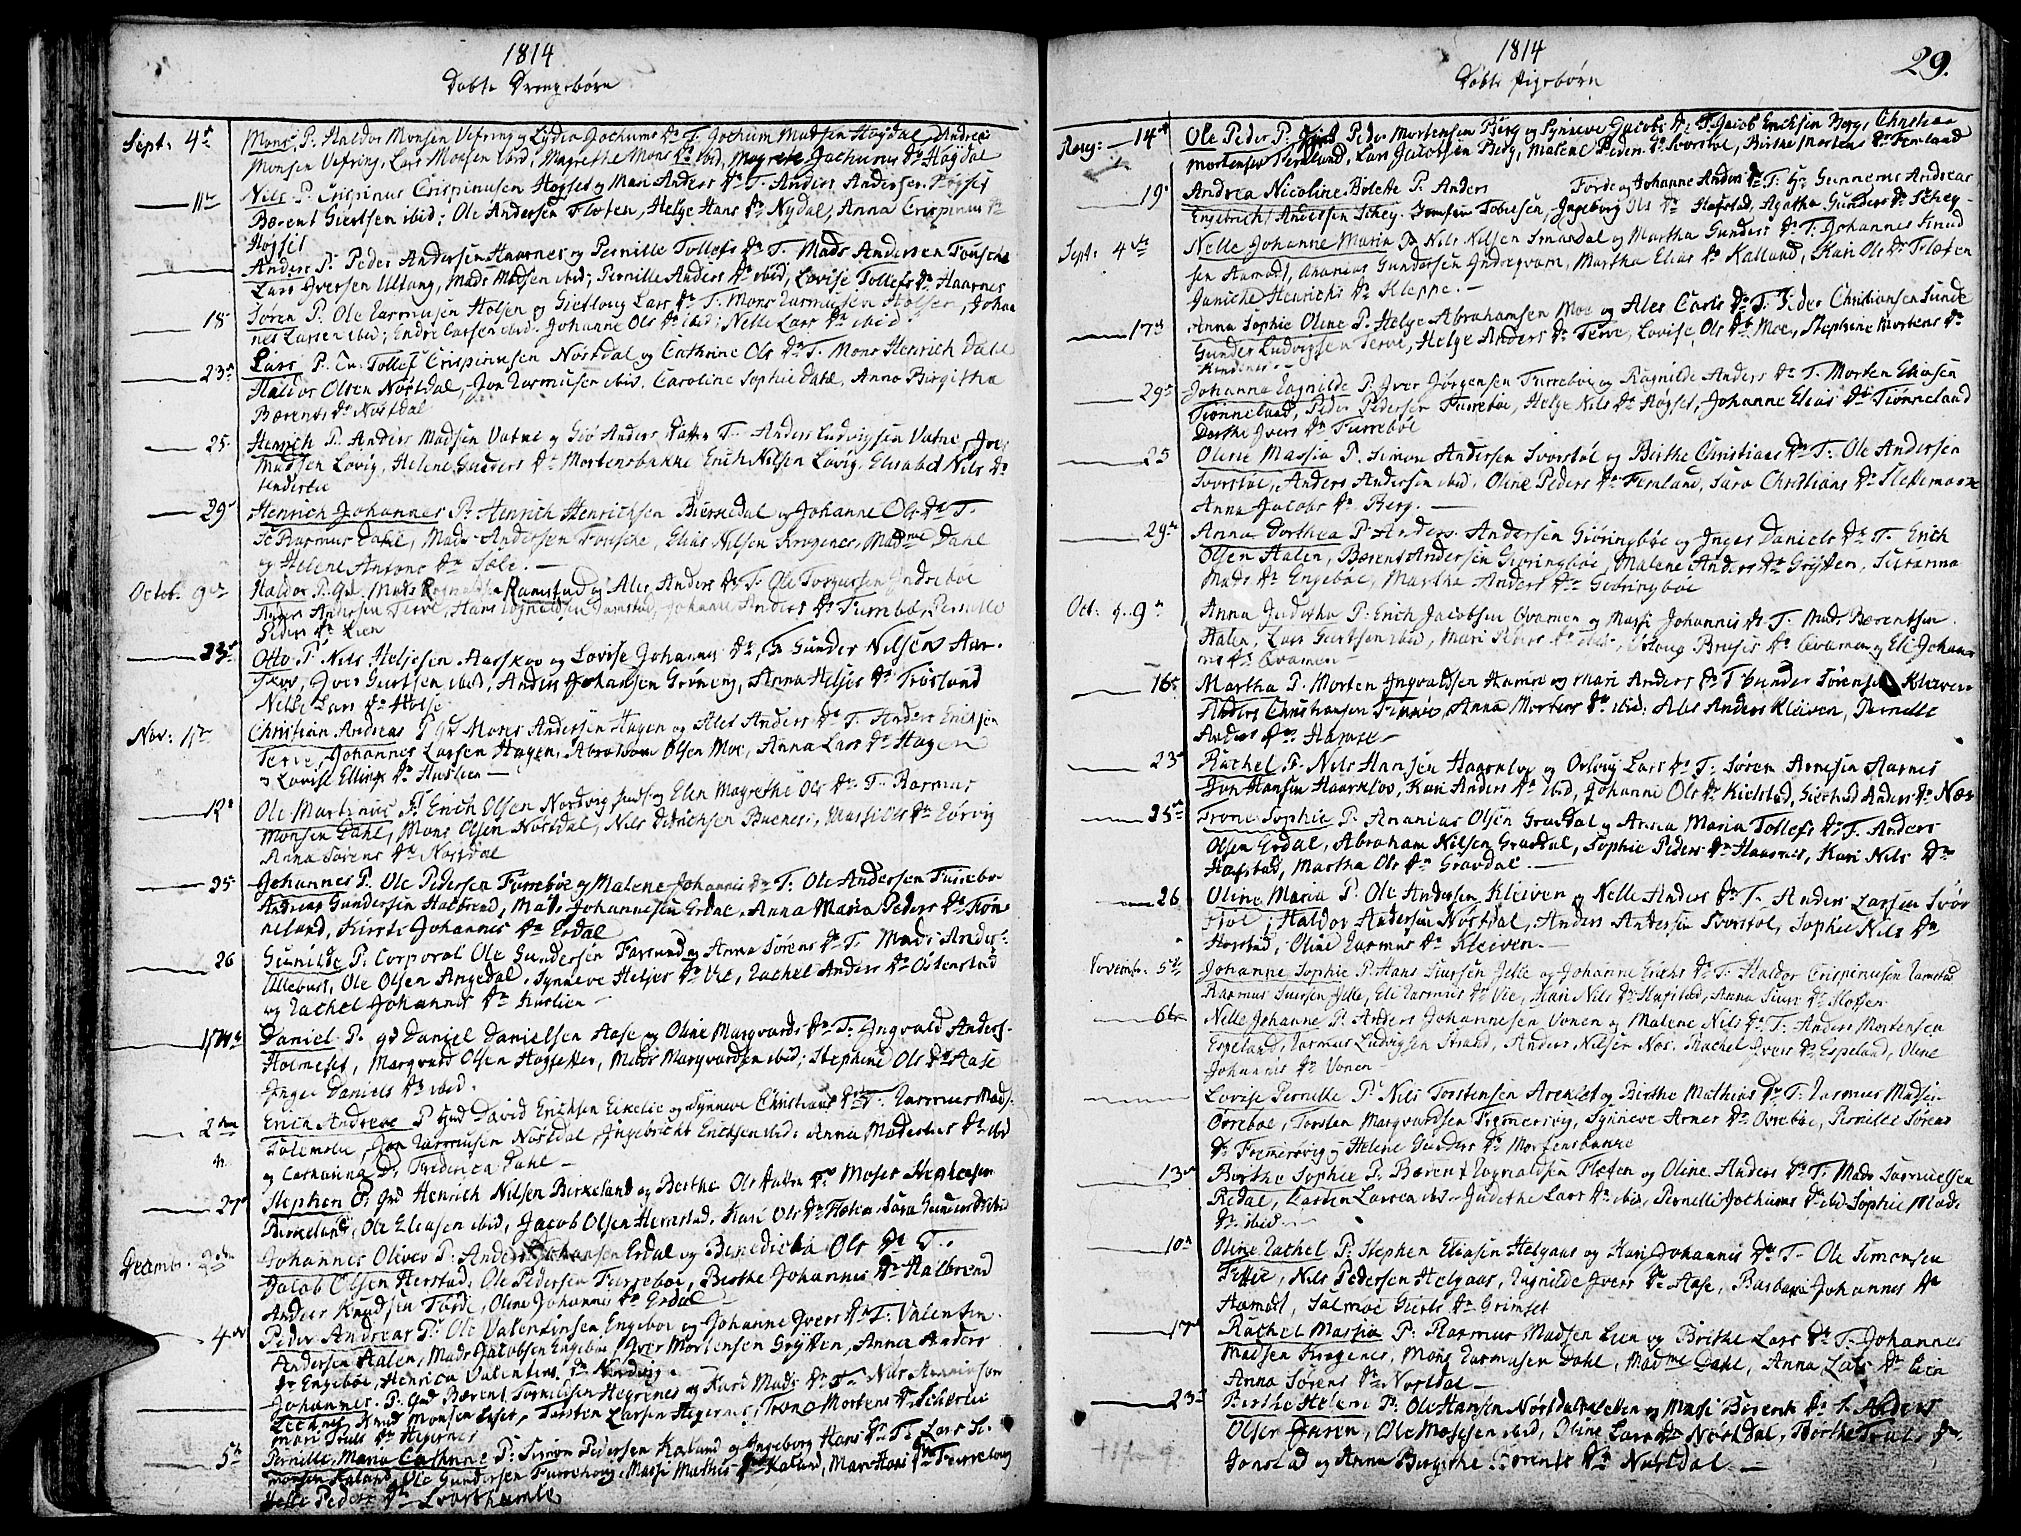 1814
Døbte Drengebørn
Sept: 4de Mons P. Haldor Monsen Vefring og Lydia Jochums Dr T. Jochum Madsen Høydal Andreas
Monsen Vefring, Lars Monsen ibid, Magrethe Mons Dr ibid, Magrete Jochums Dr Høydal
11te Nils P. Crispinus Crispinusen Hogset og Mari Anders Dr T. Anders Andersen Hogset
Bærent Giertsen ibid; Ole Andersen Floten, Helge Hans Dr Nydal, Anna Crispinus Dr
Hogset
Anders P. Peder Andersen Haarnes og Pernille Tollefs Dr T. Mads Andersen Fousche
Lars Iversen Ultang, Mads Madsen ibid; Pernille Anders Dr ibid, Lovise Tollefs Dr Haarnes
18 Søren P. Ole Rasmusen Holsen og Giertloug Lars Dr T. Mons Rasmusen Holsen, Johan
nes Larsen ibid; Endre Larsen ibid. Johanne Ols Dr ibid; Nelle Lars Dr ibid
23 Lars P. Tollef Crispinusen Nostdal og Cathrine Ols Dr T. Mons Henrich Dahl
Haldor Olsen Nostdal, Jon Rasmusen ibid, Caroline Sophie Dahl, Anna Birgitha
Bærents Dr Nostdal
25 Henrich P. Anders Madsen Vatne og Anders Datter T. Anders Ludvigsen Vatne,
Madsen Lovig, Helene Gunders Dr Mortensbakke Erich Nilsen Lovig, Elisabet Nils Dr
29 Henrich Johannes P. Henrich Henrichsen Birkedal og Johanne Ols Dr T.
Rasmus Dahl, Mads Andersen Fousche, Elias Nilsen Krogenes, Madme Dahl
og Helene Antons Dr Sole.
Octob. 9de Haldor P. Mads Rognaldsen Ramstad og Ales Anders Dr T. Ole Torgersen Indrebøe
Anders Andersen Terve, Hans Rognaldsen Ramstad, Johanne Anders Dr Furrebø, Pernille
Peders Dr Lien
23 Otto P. Nils Heljesen Aarskov og Lovise Johannes Dr, Gunder Nilsen Aar-
skov, Iver Giertsen ibid, Anders Johansen Grøneng, Anna Heljes Dr
Nelle Lars Dr Holse
Nov: 1te Christian Andreas P. Moses Andersen Hagen og Ales Anders Dr T. Anders Erichsen
Terve, Johannes Larsen Hagen, Abraham Olsen Moe, Anna Lars Dr Hagen
Lovise Ellings Dr Huslien
12 Ole Martinus P. Erich Olsen Nordvig og Elen Magrethe Ols Dr T. Rasmus
Monsen Dahl, Mons Olsen Nostdal, Nils Diderichsen, Massi Ols Dr
Anna Sørens Dr Nostdal
25 Johannes P. Ole Pedersen Furrebøe og Malene Johannis Dr T. Ole Andersen Furrebø
Andreas Gundersen Halbrend, Mads Johannesen Erdal, Anna Maria Peders Dr Tiøn
neland, Johannis Dr Erdal
26 Gunilde P. Corporal Ole Gundersen Farsund og Anna Sørens Dr T. Mads Anders:
Ulleburt, Ole Olsen Angedal, Synneve Heljes Dr Vie, Rachel Anders Dr Ostenstad
og Rachel Johannis Dr Huslien
Daniel P. Daniel Danielsen Aase og Oline Marqvards Dr T. Ingvald Anders-
Holmeset, Marqvard Olsen, Mads Marqvardsen ibid; Stephine Ols Dr Aase
Inger Daniels Dr ibid.
2den Erich Andreas P. David Erichsen Eikelie og Synneve Christians Dr T. Rasmus Mads:
Jon Rasmusen Nostdal, Ingebricht Erichsen ibid: Anna Dr ibid
og Catharina D. Frederica Dahl
27 Stephen P. Henrich Nilsen Birkeland og Berthe Ols Datter T. Moses Stephensen
Birkeland, Ole Eliasen ibid, Jacob Olsen Hernstad, Kari Ols Dr Holen Gunders Dr ibid
Decembr. 2den Johannes Oliver P. Anders Johansen Erdal og Benedicta Ols Dr T.
Jacob Olsen Herstad, Ole Pedersen Furrebøe, Birthe Johannis Dr Halbrend
Anders Knudsen Førde, Oline Johannis Dr Erdal
4de Peder Andreas P. Ole Valentinsen Engebøe og Johanne Ivers Dr T. Valentin
Andersen Aalen, Mads Jacobsen Engebøe, Iver Mortensen Grytten, Anna Anders
Dr Engebøe, Henrica Valentins Dr Nordvig
Johannes P. Bærent Hegrenes og Kari Mads Dr T. Nils
Knud Monsen, Torsten Larsen Hegrenes, Trone Mortens Dr
Mari Truls Dr Hegrenes
5te Pernille Maria Cathrine P. Simon Pedersen Kaland og Ingeborg Hans Dr T. Lars Si-
monsen Kaland, Ole Gundersen Furrehoug, Massi Mathis Dr Kaland, Mari Hans Dr Furrehoug
Helle Peders Dr Svorthumle
1814
Døbte Pigebørn
29.
Aug: 14de Ole Peder P. Peder Mortensen Berg og Synneve Jacobs Dr T. Jacob Erichsen Berg, Christian
Mortensen Femland, Lars Jacobsen Berg, Malene Peders Dr Svorstøl, Birthe Mortens Dr Femland
19 Andrea Nicoline Bolette P. Anders Førde og Johanne Anders Dr T. Hr Gunnerus Andreas
Engebrich Andersen Schey. Tobiesen, Ingeborg Ols Dr Hafstad, Agatha Gunders Dr Schey
Sept: 4de Nelle Johanne Maria P. Nils Nilsen Smørdal og Martha Gunders Dr T. Johannes Knud
sen Aamodt, Ananias Gundersen Indreqvam, Martha Elias Dr Kalland, Kari Ols Dr Fløten
Janiche Henrichs Dr Kleppe.
17 Anna Sophie Oline P. Helge Abrahamsen Moe og Ales Carls Dr T. Peder Christiansen Sunde
Gunder Ludvigsen Terve, Helge Anders Dr Terve, Lovise Ols Dr Moe, Stephine Mortens Dr
29 Johanna Ragnilde P. Iver Jørgensen Furrebøe og Ragnilde Anders Dr T. Morten Eliasen
Tiønneland, Peder Pedersen Furrebøe, Helge Nils Dr Hogset, Johanne Elias Dr Tiønneland
Dorthe Ivers Dr Furrebøe
25 Oline Massia P. Simon Andersen Svorstøl og Birthe Christians Dr T. Ole Andersen
Svorstøe, Anders Andersen ibid, Oline Peders Dr Femland, Sara Christians Dr Slettemoen
Anna Jacobs Dr Berg.
29 Anna Dorthea P. Anders Andersen Giøringbøe og Inger Daniels Dr T. Erich
Olsen Aalen, Bærent Andersen Giøringbøe, Malene Anders Dr Grytten, Susanna
Mads Dr Engebøe, Martha Anders Dr Giøringbøe
Oct: 9 Anna Juditha P. Erich Jacobsen Qvamen og Massi Johannis Dr T. Mads Bærentsen
Aalen, Lars Giertsen ibid, Mari Peders Dr ibid, Orloug Bruses Dr Qvamen, Eli Johan
nis Dr Qvamen
16 Martha P. Morten Ingvaldsen Hamre og Mari Anders Dr T. Gunder Sørensen Kleiven
Anders Christiansen, Anna Mortens Dr ibid: Ales Anders Kleiven, Pernille
Anders Dr Hamre
23 Rachel P. Nils Hansen Haarklov og Orloug Lars Dr T. Søren Arnesen Aarnes
Jon Hansen Haarklov, Kari Anders Dr ibid, Johanne Ols Dr Kielstad, Giertrud Anders Dr Næs
25 Trone Sophie P. Ananias Olsen Gravdal og Anna Maria Tollefs Dr T. Anders
Olsen Erdal, Abraham Nilsen Gravdal, Sophie Peders Dr Haarnes, Kari Nils Dr
Hafstad, Martha Ols Dr Gravdal.
26 Oline Maria P. Ole Andersen Kleiven og Nelle Anders Dr T. Anders Larsen Svor
støe, Haldor Andersen Nostdal, Anders Andersen Svorstøl, Sophie Nils Dr
Hafstad, Oline Rasmus Dr Kleiven.
Novembr. 5te Johanne Sophie P. Hans Siursen Jelle og Johanne Erichs Dr T. Haldor Crispinusen Ramstad
Rasmus Siursen Jelle, Eli Rasmus Dr Vie, Kari Nils Dr Hafstad, Anna Siurs Dr Floten
6te Nelle Johanne P. Anders Johannesen Vonen og Malene Nils Dr T. Anders Mortensen
Espeland, Rasmus Ludvigsen Strand, Anders Nilsen Nos. Rachel Ivers Dr Espeland, Oline
Johannis Dr Vonen
Lovise Pernille P. Nils Torstensen Areklet og Birthe Mathias Dr T. Rasmus Madsen
Ovrebøe, Torsten Marqvardsen Fremersvig, Synneve Arnes Dr Ovrebøe, Pernille Sørens
Dr Fremersvig, Helene Gunders Dr Mortensbakke
13 Berthe Sophie P. Bærent Rognaldsen Fløten og Oline Anders Dr T. Mads Samuelsen
Redal, Larsen ibid. Judithe Lars Dr ibid, Pernille Jochums Dr ibid Sophie Mads
Dr ibid
10 Oline Rachel P. Stephen Eliasen Helgaas og Kari Johannis Dr T. Ole Simonsen
Tettie, Nils Pedersen Helgaas, Ragnilde Ivers Dr Aase, Barbara Johannes Dr
Aamodt, Salmoe Gierts Dr Grimset
17 Rachel Massia P. Rasmus Madsen Lien og Birthe Lars Dr T. Johannes
Madsen Krogenes, Mons Rasmusen Dahl, Madme Dahl, Anna Lars Dr Lien
Anna Sørens Dr Nostdal
23 Berthe Helene P. Ole Hansen Nostdal og Masi Bærents Dr T. Anders
Olsen Faren, Ole Mosesen ibid, Oline Lars Dr Nostdal, Birthe Truls Dr
Jonstad og Anna Birgithe Bærents Dr Nostdal.